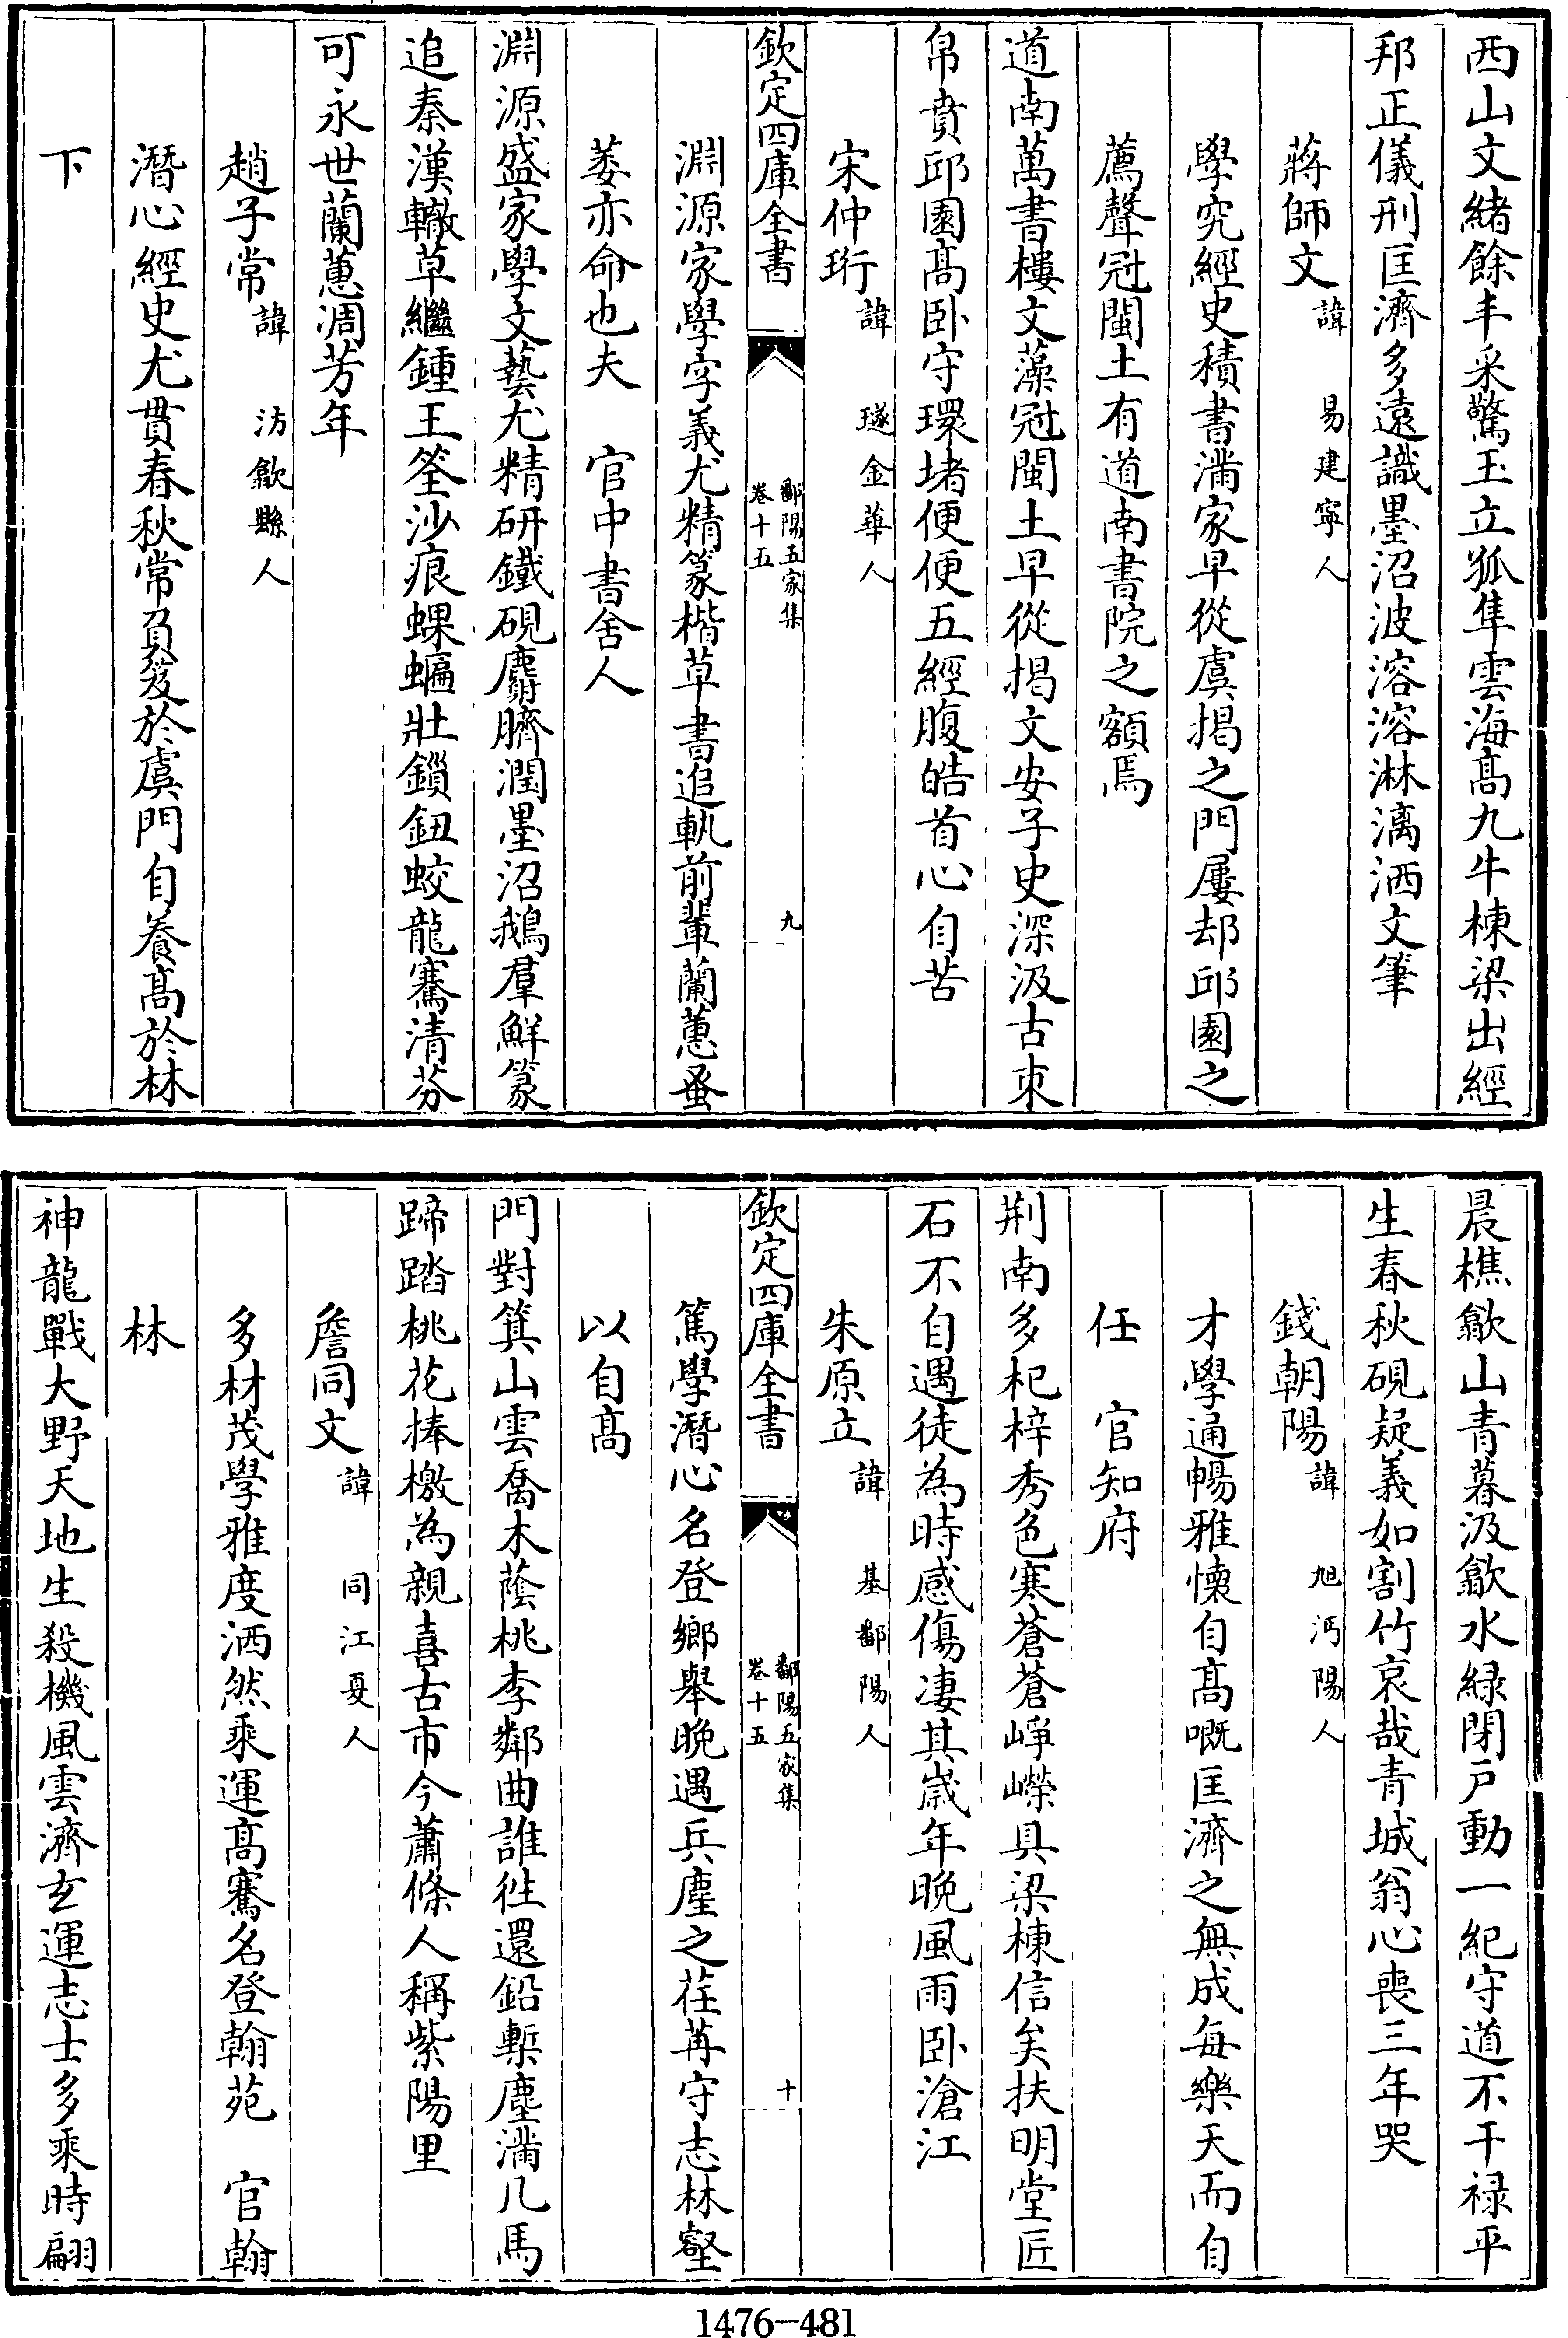 西山文緒餘丰采驚玉立孤隼雲海髙九牛棟梁出經
邦正儀刑匡濟多遠識墨沼波溶溶淋漓洒文筆
蔣師文諱 易建寧人
學究經史積書滿家早從虞揭之門屢却邱園之
薦聲冠閩土有道南書院之額焉
道南萬書樓文藻冠閩土早從揭文安子史深汲古束
帛賁邱園髙卧守環堵便便五經腹皓首心自苦
宋仲珩諱 璲金華人
欽定四庫全書
鄱陽五家集
卷十五
九
淵源家學字義尤精篆楷草書追軌前輩蘭蕙蚤
萎亦命也夫 官中書舍人
淵源盛家學文藝尤精研鐵硯麝臍潤墨沼鵝羣鮮篆
追秦漢轍草繼鍾王筌沙痕蜾蝙壯鎖鈕蛟龍騫清芬
可永世蘭蕙凋芳年
趙子常諱 汸歙縣人
潛心經史尤貫春秋常負笈於虞門自養髙於林
下
晨樵歙山青暮汲歙水緑閉戸動一紀守道不干禄平
生春秋硯疑義如割竹哀哉青城翁心喪三年哭
錢朝陽諱 旭沔陽人
才學通暢雅懷自髙嘅匡濟之無成每樂天而自
任 官知府
荆南多杞梓秀色寒蒼蒼崢嶸具梁棟信矣扶明堂匠
石不自遇徒為時感傷凄其嵗年晚風雨卧滄江
朱原立諱 基鄱陽人
欽定四庫全書
鄱陽五家集
卷十五
十
篤學潛心名登鄉舉晚遇兵塵之荏苒守志林壑
以自髙
門對箕山雲喬木蔭桃李鄰曲誰徃還鉛槧塵滿几馬
蹄踏桃花捧檄為親喜古市今蕭條人稱紫陽里
詹同文諱 同江夏人
多材茂學雅度洒然乘運髙騫名登翰苑 官翰
林
神龍戰大野天地生殺機風雲濟玄運志士多乘時翩
1476-481